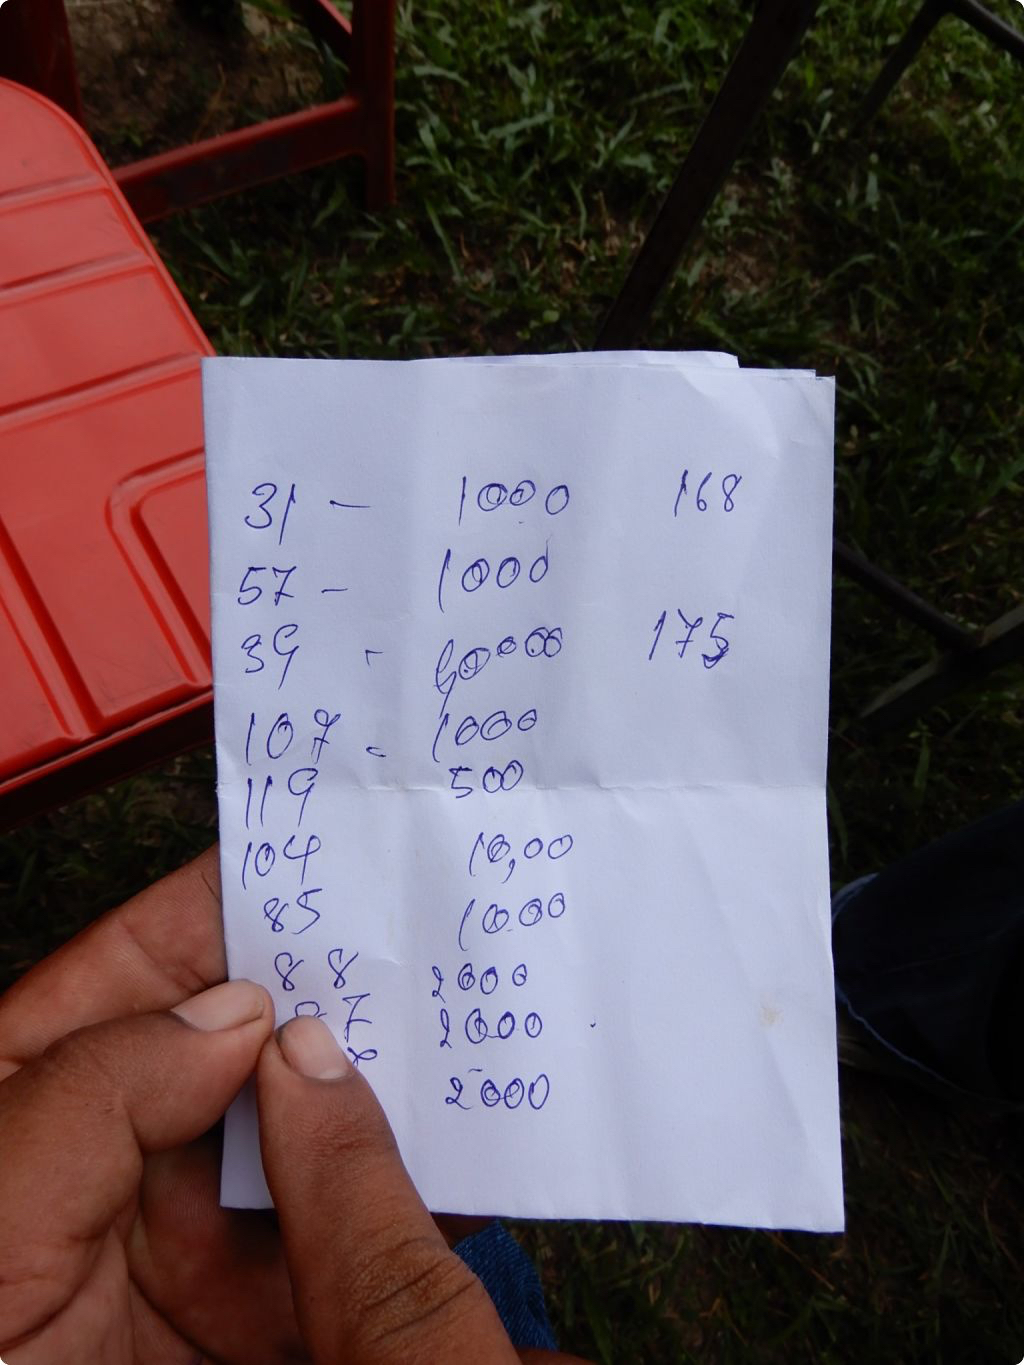 31 - 1000 168
57 - 1000
39 - 175
107 - 1000
119 500
104 10,00
85 1000
88 2000
97 2000
2000